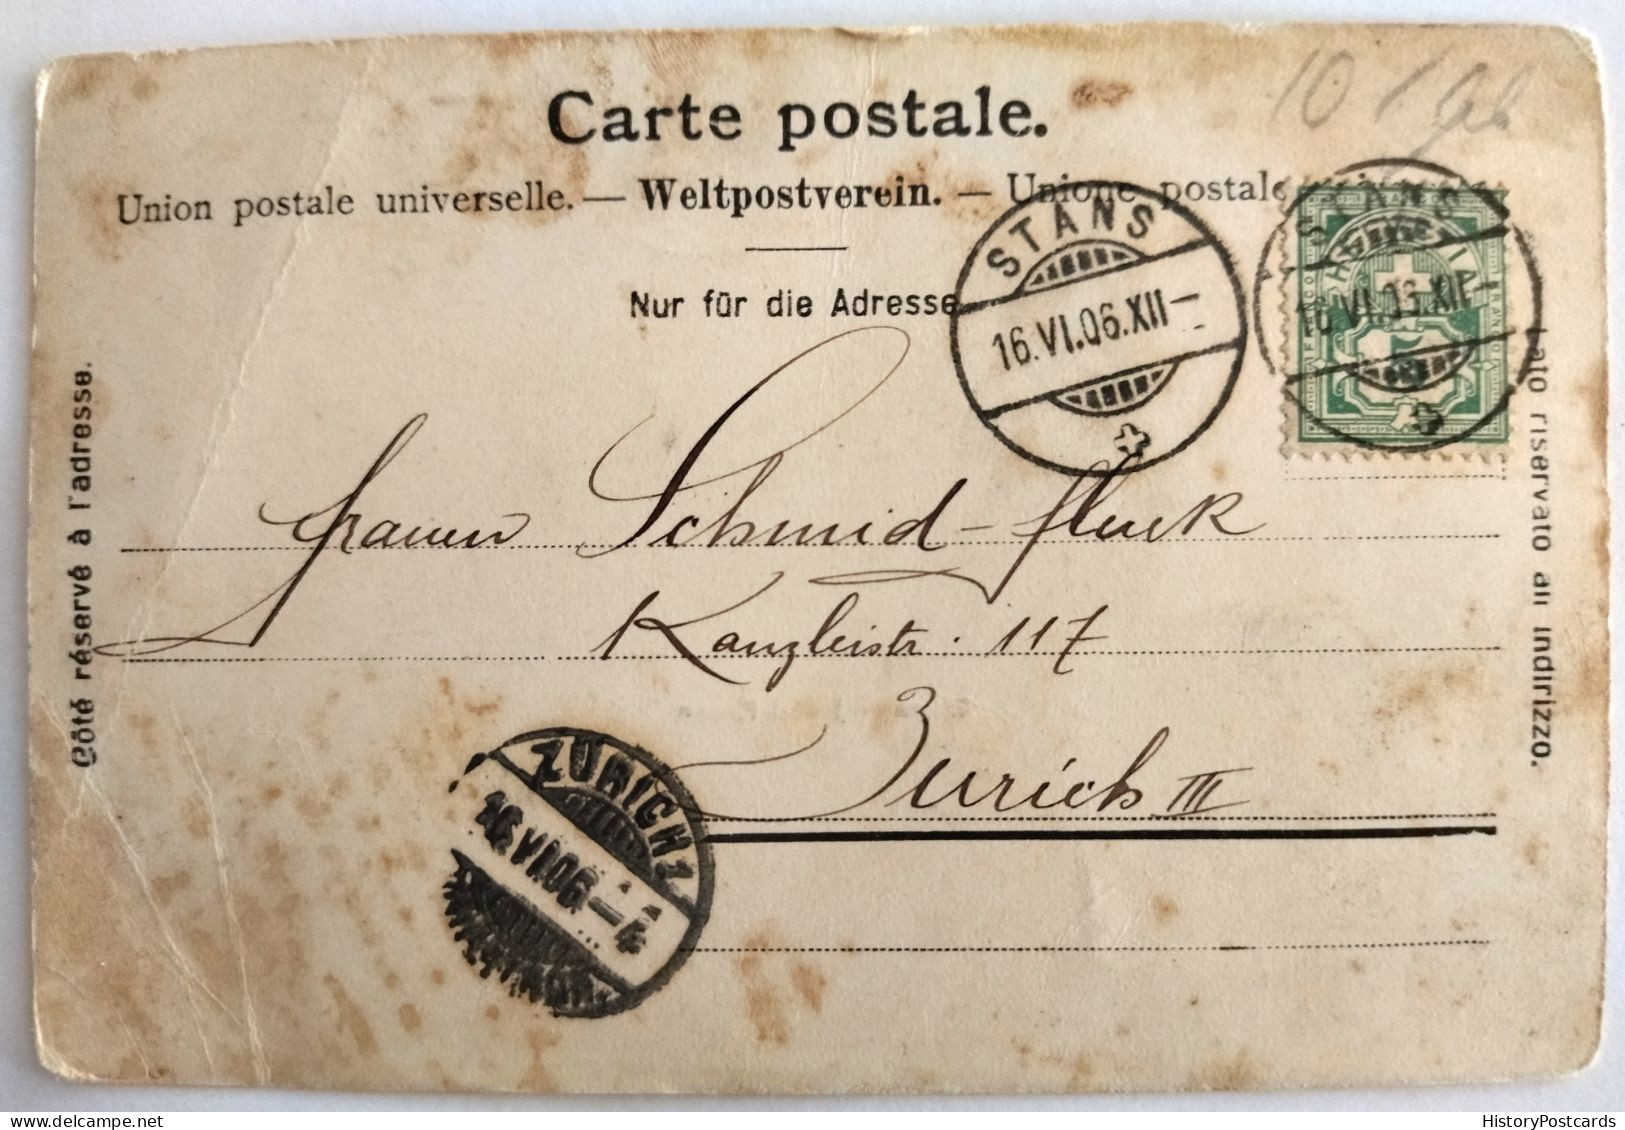 10
Carte postale.
Union postale universelle. — Weltpostverein. — Unione postale
Nur für die Adresse
Côté réservé à l'adresse.
Lato riservato all indirizzo.
STANS
16.VI.06.XII—
STANS
16.VI.06.XII—
HELVETIA
FRANCO
5
Frauen Schmid-Fluck
Kanzleistr: 117
Zürich III
ZÜRICH 1
16.VI.06.—4
HistoryPostcards